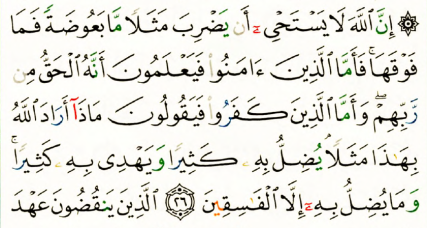 ۞ إِنَّ ٱللَّهَ لَا يَسْتَحْىِۦٓ أَن يَضْرِبَ مَثَلًا مَّا بَعُوضَةً فَمَا
فَوْقَهَا ۚ فَأَمَّا ٱلَّذِينَ ءَامَنُوا۟ فَيَعْلَمُونَ أَنَّهُ ٱلْحَقُّ مِن
رَّبِّهِمْ ۖ وَأَمَّا ٱلَّذِينَ كَفَرُوا۟ فَيَقُولُونَ مَاذَآ أَرَادَ ٱللَّهُ
بِهَٰذَا مَثَلًا ۘ يُضِلُّ بِهِۦ كَثِيرًا وَيَهْدِى بِهِۦ كَثِيرًا ۚ
وَمَا يُضِلُّ بِهِۦٓ إِلَّا ٱلْفَٰسِقِينَ ۝٢٦ ٱلَّذِينَ يَنقُضُونَ عَهْدَ